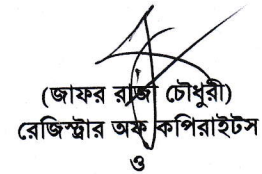 (জাফর রাজা চৌধুরী)
রেজিস্ট্রার অফ কপিরাইটস
ও